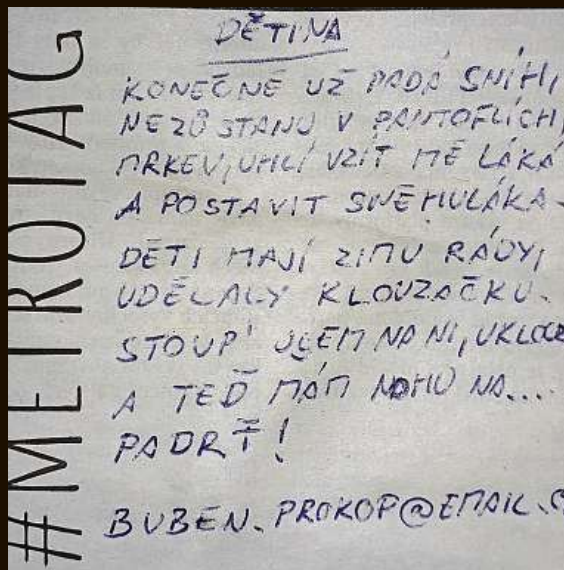 #METROTAG
DĚTINA
KONEČNĚ UŽ PADÁ SNÍH,
NEZŮSTANU V PANTOFLÍCH,
MRKEV, UHLÍ VZÍT MĚ LÁKÁ
A POSTAVIT SNĚHULÁKA.
DĚTI MAJÍ ZIMU RÁDY,
UDĚLALY KLOUZAČKU.
STOUP' JSEM NA NI, UKLOUZ
A TEĎ MÁM NOHU NA....
PADRŤ!
BUBEN.PROKOP@EMAIL.C